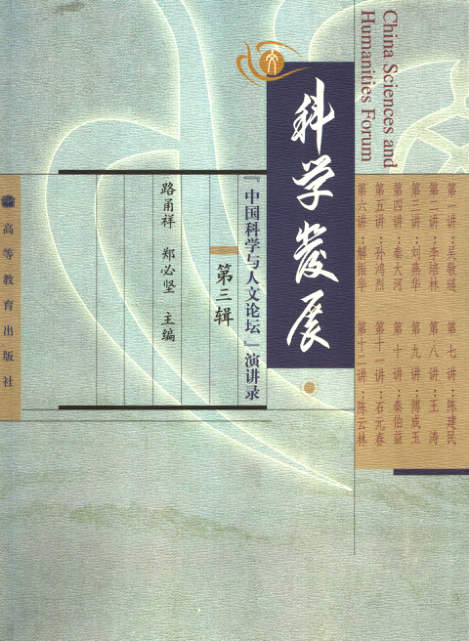 China Sciences and
Humanities Forum
第一讲：吴敬琏
第二讲：李培林
第三讲：刘燕华
第四讲：秦大河
第五讲：孙鸿烈
第六讲：解振华
第七讲：陈建民
第八讲：王涛
第九讲：傅成玉
第十讲：秦伯益
第十一讲：石元春
第十二讲：陈云林
科学发展
『中国科学与人文论坛』演讲录
第三辑
路甬祥 郑必坚 主编
高等教育出版社